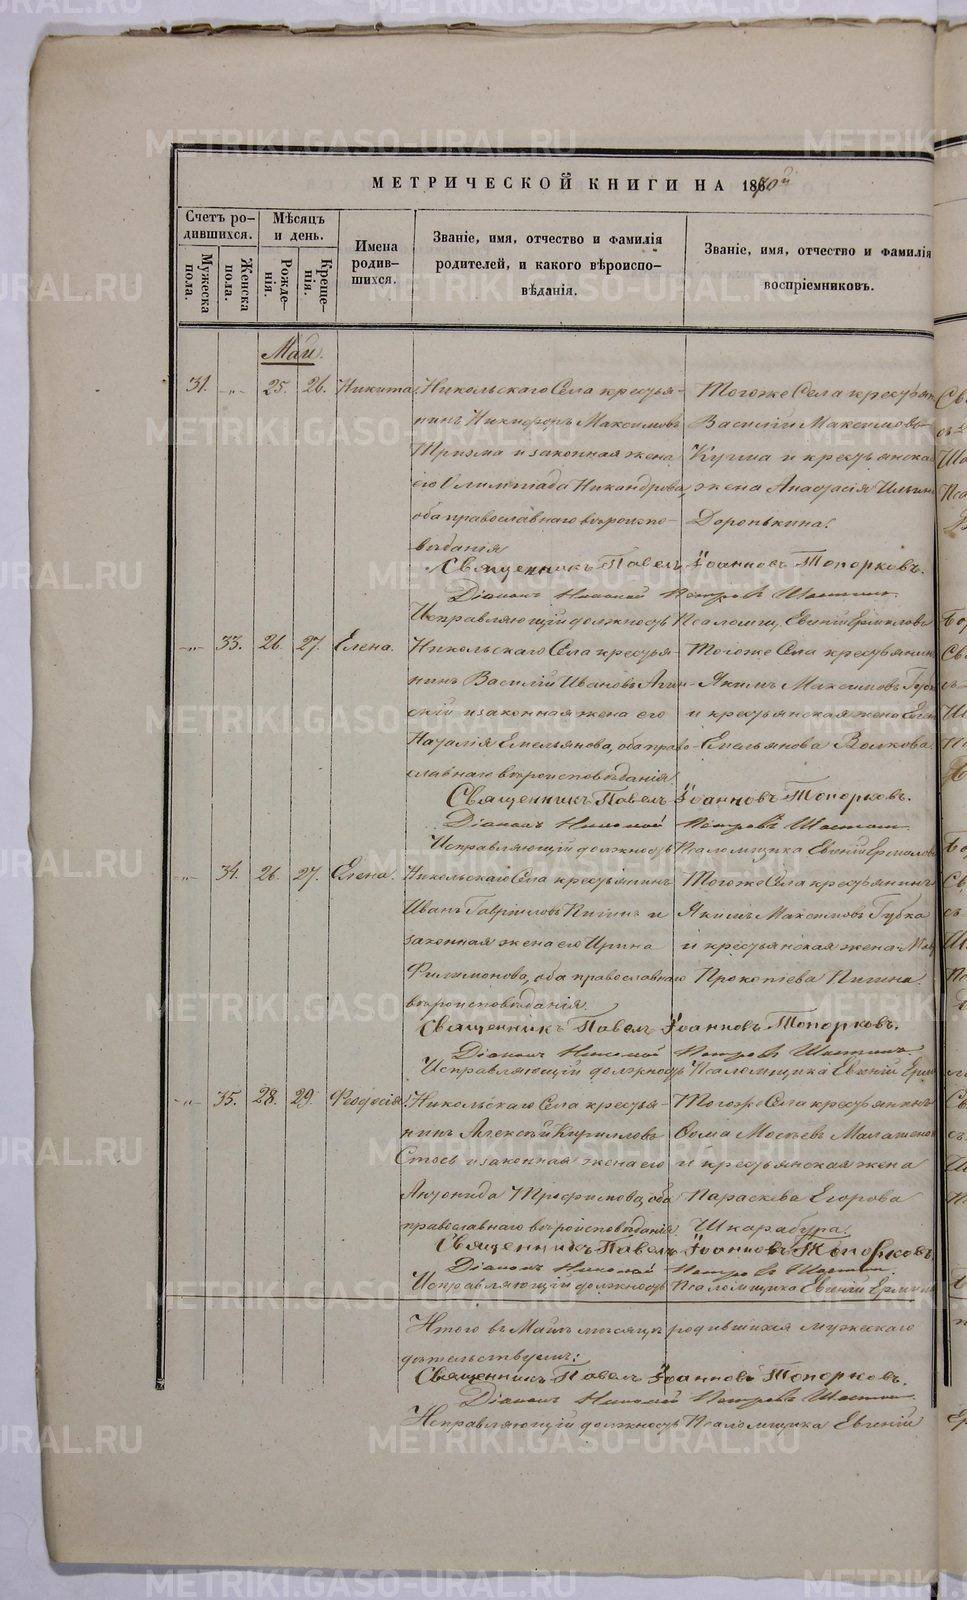 МЕТРИЧЕСКОЙ КНИГИ НА 1870й
Счетъ ро-
дившихся.
Мужеска
пола.
Женска
пола.
Мѣсяцъ
и день.
Рожде-
нія.
Креще-
нія.
Имена
родив-
шихся.
Званіе, имя, отчество и фамилія
родителей, и какого вѣроиспо-
вѣданія.
Званіе, имя, отчество и фамилія
воспріемниковъ.
Май.
31. -"- 25. 26. Никита. Никольскаго Села крестья- Тогоже Села крестьян
нинъ Никифоръ Максимовъ Василій Максимовъ
и законная жена Кузма и крестьянская
его Олимпіада Никандрова, жена Анастасія Ильин
оба православнаго вѣроиспо- Доронькина.
вѣданія
Священникъ Павелъ Іоанновъ Топорковъ.
Діаконъ Николай Петровъ
Исправляющій должность Псаломщ. Евгеній Ермиловъ
-"- 33. 26. 27. Елена. Никольскаго Села крестья- Тогоже Села крестьянин
нинъ Василій Ивановъ Агин- Якимъ Максимовъ Губк
скій и законная жена его и крестьянская жена Евген
Наталія Емельянова, оба право- Емельянова Волкова
славнаго вѣроисповѣданія
Священникъ Павелъ Іоанновъ Топорковъ.
Діаконъ Николай Петровъ
Исправляющій должность Псаломщика Евгеній Ермилов
-"- 34. 26. 27. Елена. Никольскаго Села крестьянинъ Тогоже Села крестьянинъ
Иванъ Гавриловъ Пигинъ и Якимъ Максимовъ Губка
законная жена его Ирина и крестьянская жена
Филимонова, оба православнаго Прокопіева Пигина.
вѣроисповѣданія.
Священникъ Павелъ Іоанновъ Топорковъ.
Діаконъ Николай Петровъ
Исправляющій должность Псаломщика Евгеній Ерми
-"- 35. 28. 29. Феодосія. Никольскаго Села крестья- Тогоже Села крестьянинъ
нинъ Алексѣй Кирилловъ Ѳома Мосѣевъ
Стось и законная жена его и крестьянская жена
Антонида Трофимова, оба Параскева Егорова
православнаго вѣроисповѣданія Шкарабура
Священникъ Павелъ Іоанновъ Топорковъ
Діаконъ Николай Петровъ
Исправляющій должность Псаломщика Евгеній Ермил
Итого въ Маѣ мѣсяцѣ родившихся мужескаго
дѣтельствуемъ:
Священникъ Павелъ Іоанновъ Топорковъ.
Діаконъ Николай Петровъ
Исправляющій должность Псаломщика Евгеній
METRIKI.GASO-URAL.RU